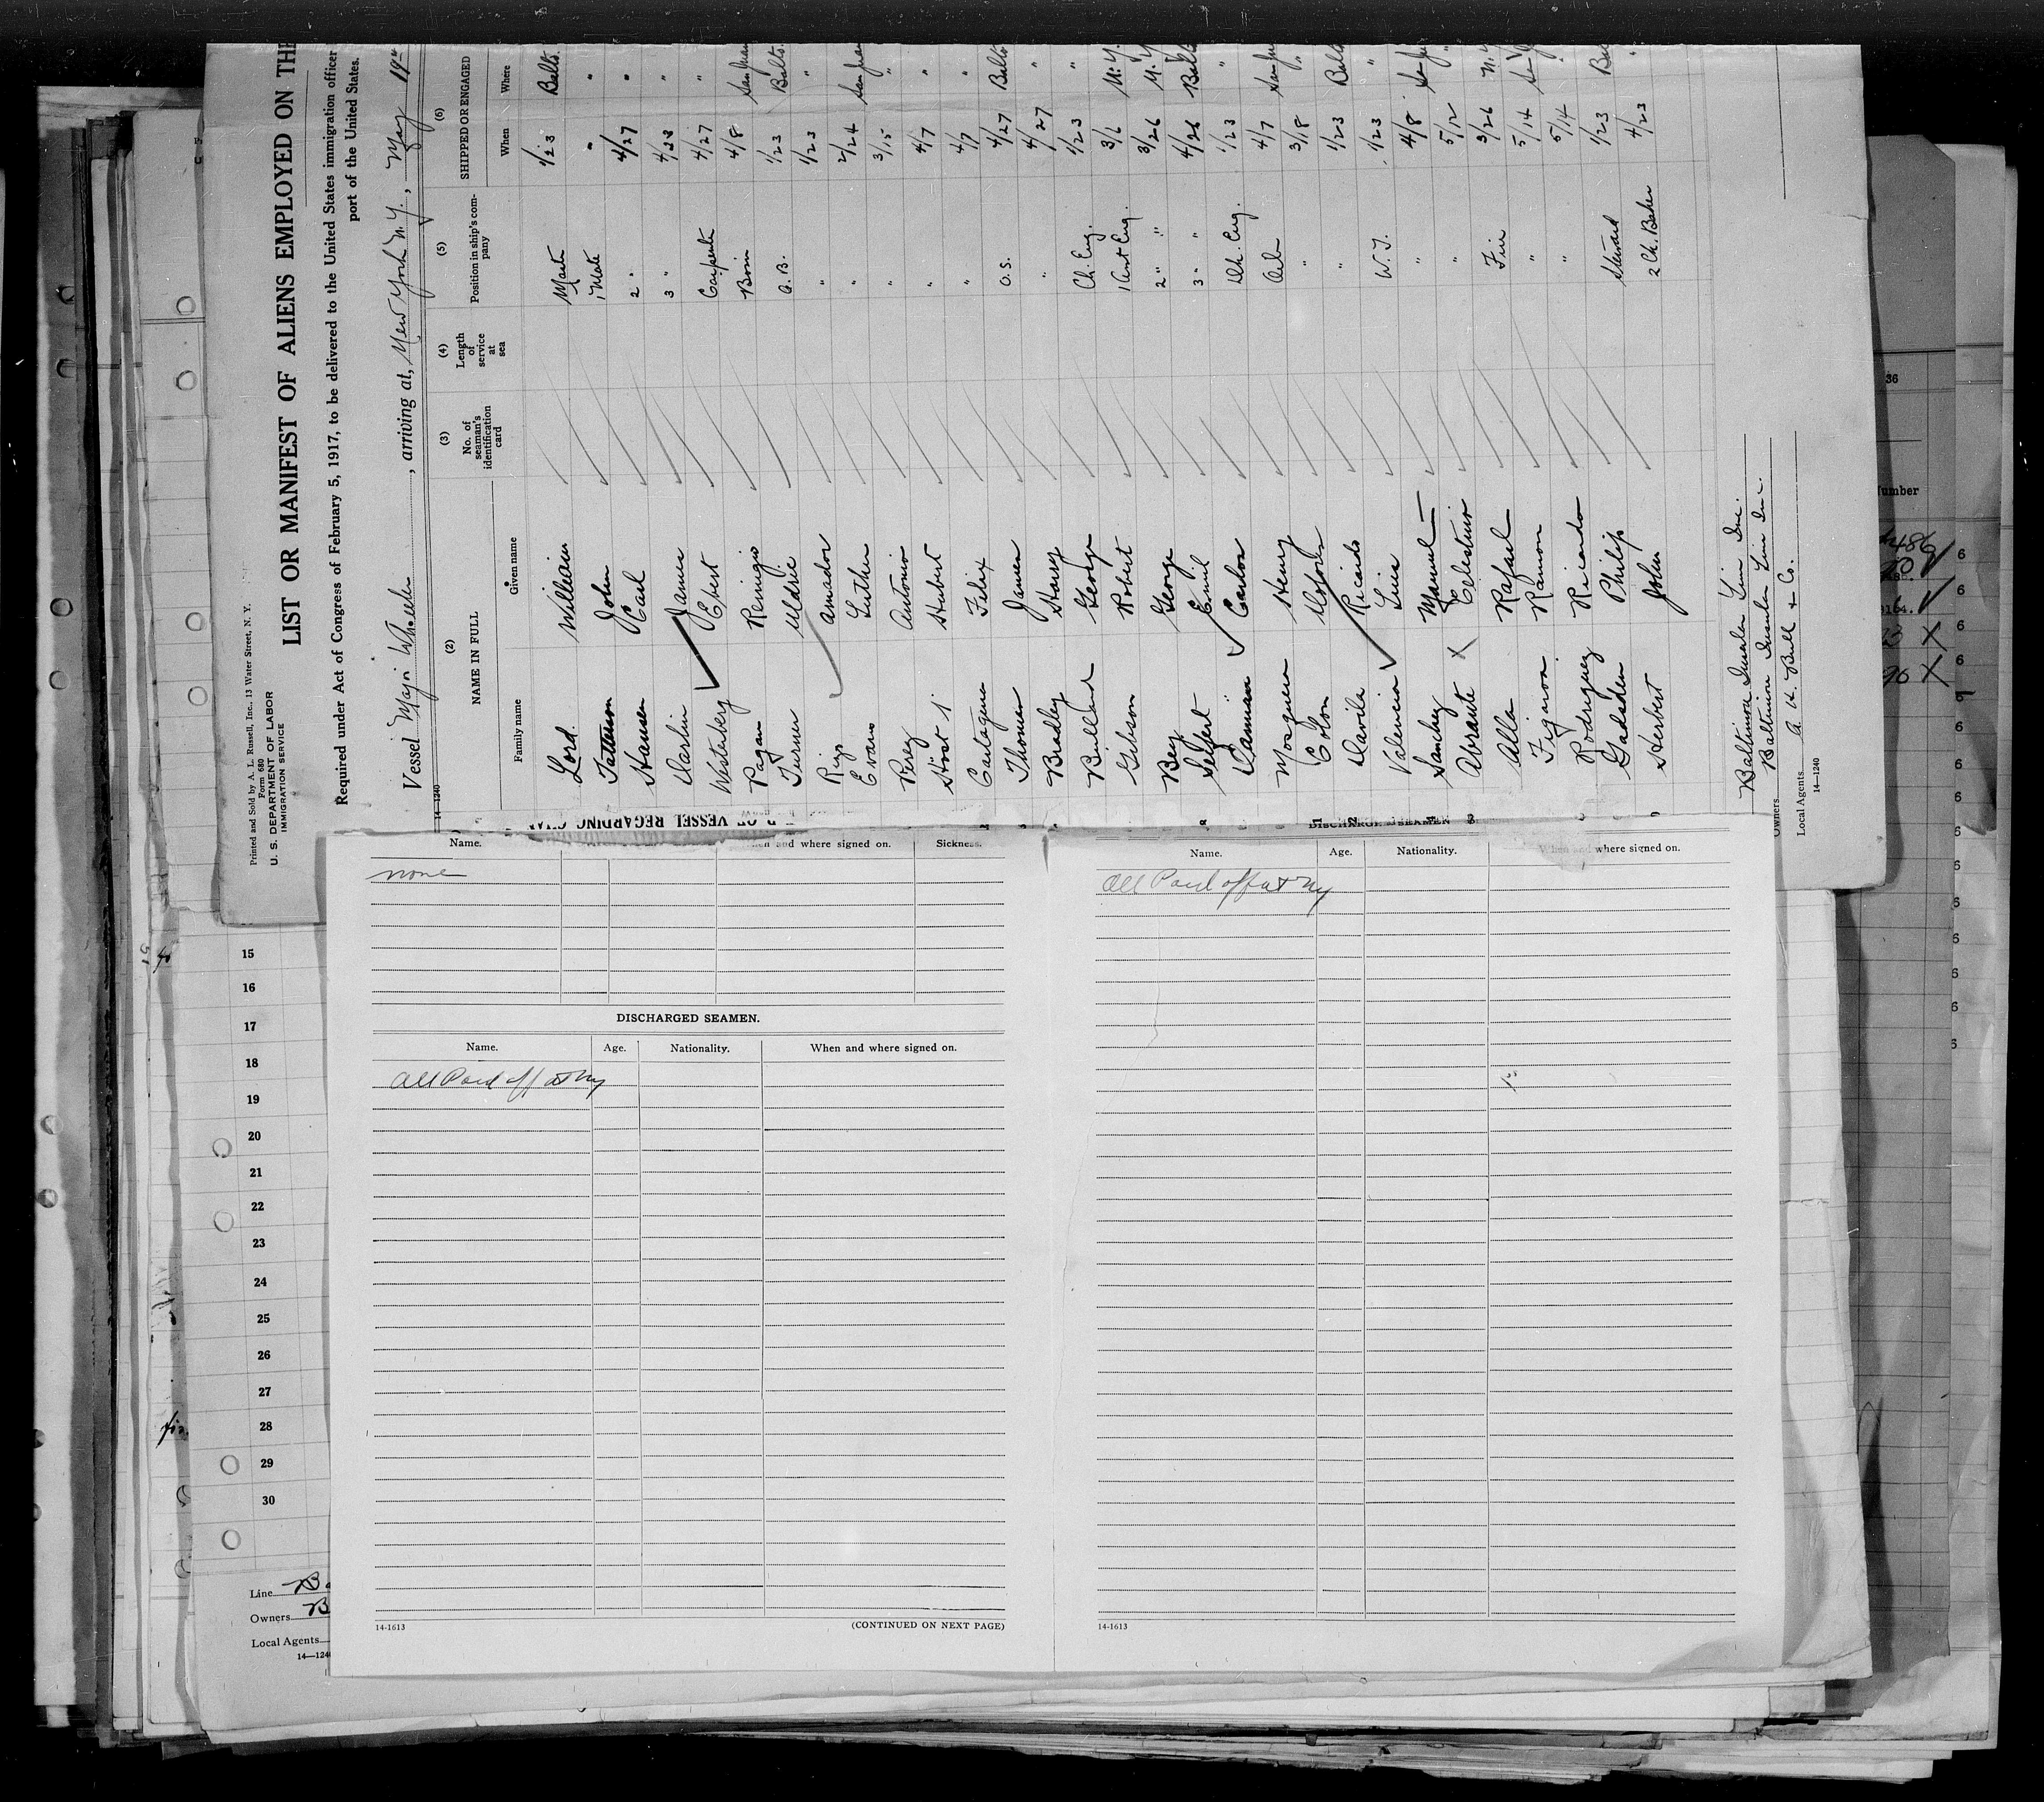 Printed and Sold by A. L. Russell, Inc., 13 Water Street, N. Y.
Form 680
U. S. DEPARTMENT OF LABOR
IMMIGRATION SERVICE
LIST OR MANIFEST OF ALIENS EMPLOYED ON THE
Required under Act of Congress of February 5, 1917, to be delivered to the United States immigration officer
port of the United States.
Vessel Major Wheeler, arriving at, New York N.Y., May 19
14—1240
(2) (3) (4) (5) (6)
NAME IN FULL No. of seaman's identification card Length of service at sea Position in ship's company SHIPPED OR ENGAGED
Family name Given name When Where
Lord William Master 1/23 Balto.
Patterson John 1 Mate " "
Hansen Carl 2 " 4/27 "
Darlin James 3 " 4/23 "
Westerberg Ebert Carpenter 4/27 "
Pagan Remigio Bosin 4/8 San Juan
Turner Uldric A.B. 1/23 Balto.
Rizo Amador " 1/23 "
Evans Luther " 2/24 San Juan
Perez Antonio " 3/15 "
Hubert " 4/7 "
Cartagena Felix " 4/7 "
Thomas James O.S. 4/27 Balto
Bradley Harry " 4/27 "
Bullard George Ch. Eng. 1/23 "
Gibson Robert 1 Asst Eng. 3/6 N.Y.
Bey George 2 " " 3/26 N.Y.
Selfert Emil 3 " " 4/26 Balto
Damian Carlos Dk. Eng. 1/23 "
Mosquera Henry Oiler 4/7 San Ju
Colon " 3/18 "
Davila Ricardo " 1/23 Balto
Valencia Luis W.T. 1/23 "
Sanchez Manuel " 4/8 San Ju
Abrante Celestino " 5/12 "
Alla Rafael Fire 3/26 N.Y
Figaroa Ramon " 5/14 San J
Rodriguez Ricardo " 5/14 "
Gadsden Philip Steward 1/23 Bal
Herbert John 2 Ck. Baker 4/23 "
Baltimore Insular Line Inc.
Owners Baltimore Insular Line Inc.
Local Agents A. H. Bull & Co.
14—1240
OF VESSEL REGARDING
Name. When and where signed on. Sickness.
none
DISCHARGED SEAMEN.
Name. Age. Nationality. When and where signed on.
All Paid off at NY
14-1613
(CONTINUED ON NEXT PAGE)
Name. Age. Nationality. When and where signed on.
All Paid off at NY
14-1613
15
16
17
18
19
20
21
22
23
24
25
26
27
28
29
30
Line
Owners
Local Agents
14—1240
36
Number